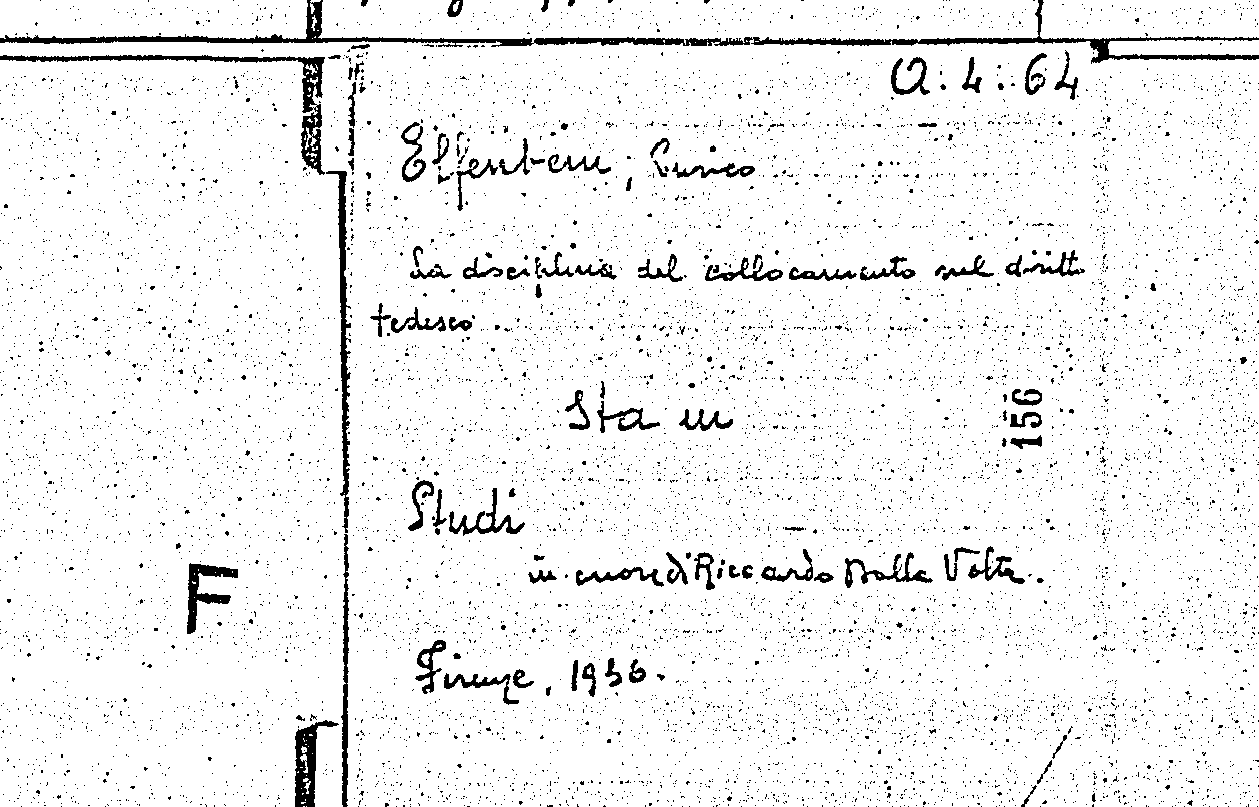 O.4.64
Elfenbein, Enrico
La disciplina del collocamento nel diritto
tedesco.
Sta in
156
Studi
F
in onore di Riccardo Dalla Volta.
Firenze, 1936.